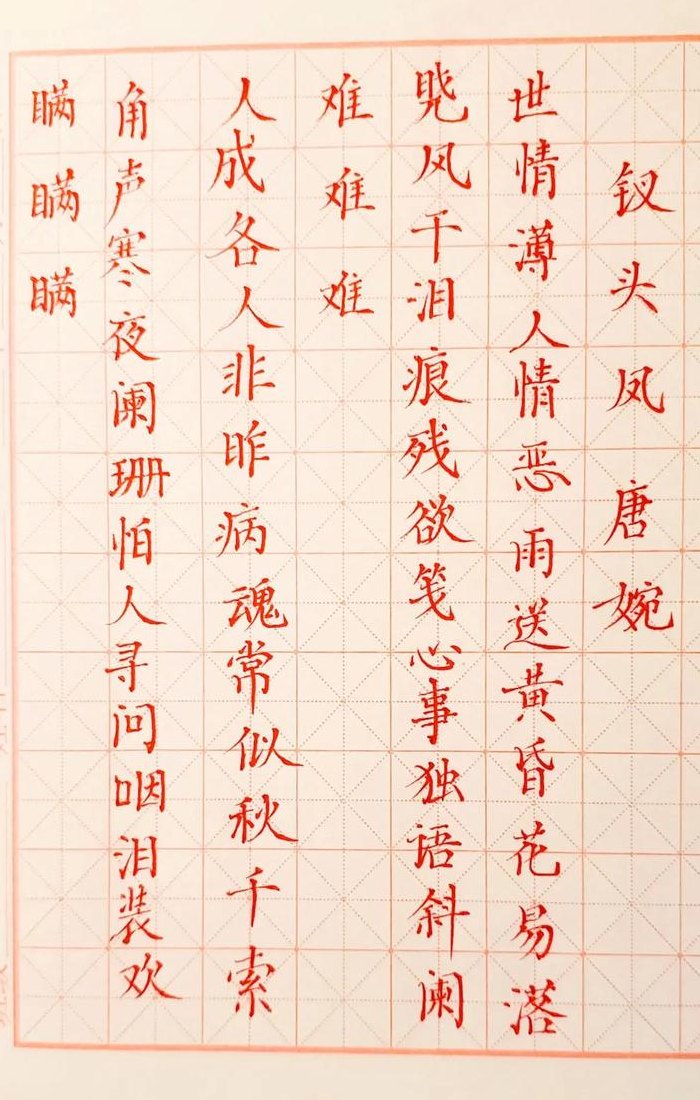 钗头凤唐婉
世情薄人情恶雨送黄昏花易落
晓风干泪痕残欲笺心事独语斜阑
难难难
人成各人非昨病魂常似秋千索
角声寒夜阑珊怕人寻问咽泪装欢
瞒瞒瞒